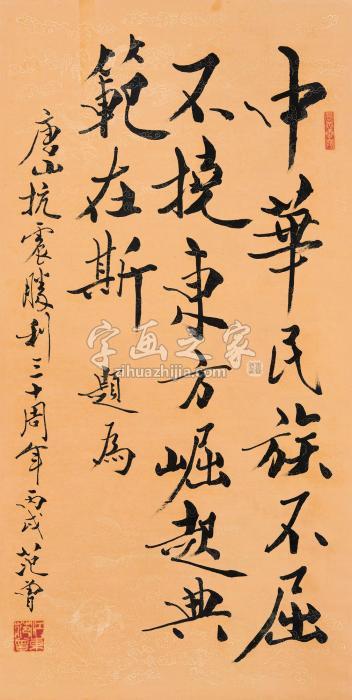 中華民族不屈
不撓東方崛起典
範在斯 題為
唐山抗震勝利三十周年 丙戌 范曾
字画之家
zihuazhijia.com